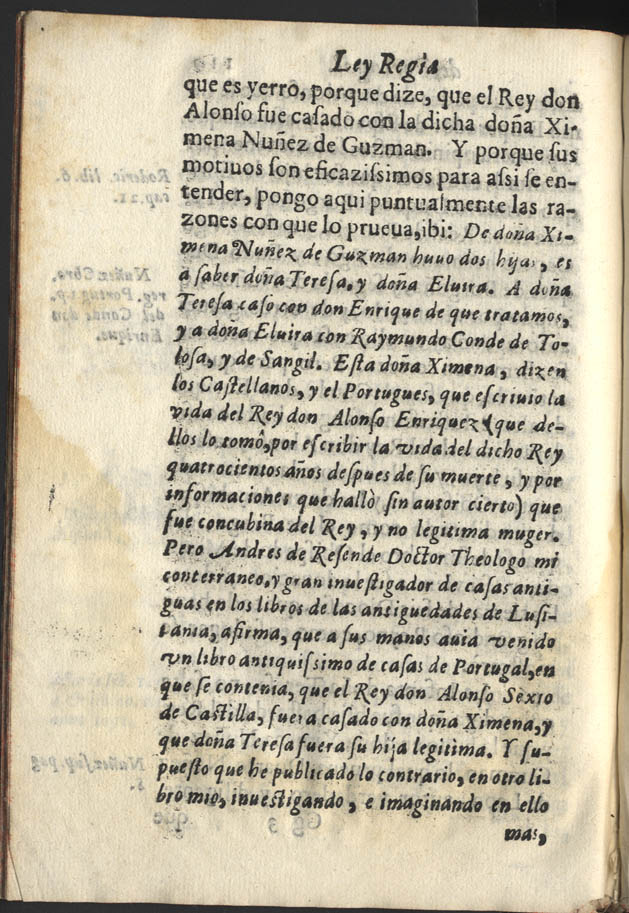 Ley Regia
que es yerro, porque dize, que el Rey don
Alonſo fue caſado con la dicha doña Xi-
mena Nuñez de Guzman. Y porque ſus
motiuos ſon eficaziſsimos para aſsi ſe en-
tender, pongo aqui puntualmente las ra-
zones con que lo prueua, ibi: De doña Xi-
mena Nuñez de Guzman huuo dos hijas, es
à ſaber doña Tereſa, y doña Eluira. A doña
Tereſa casò con don Enrique de que tratamos,
y a doña Eluira con Raymundo Conde de To-
loſa, y de Sangil. Eſta doña Ximena, dizen
los Caſtellanos, y el Portugues, que eſcriuio la
vida del Rey don Alonſo Enriquez (que de-
llos lo tomò, por eſcribir la vida del dicho Rey
quatrocientos años deſpues de ſu muerte, y por
informaciones que hallò ſin autor cierto) que
fue concubina del Rey, y no legitima muger.
Pero Andres de Reſende Doctor Theologo mi
conterraneo, y gran inueſtigador de caſas anti-
guas en los libros de las antiguedades de Luſi-
tania, afirma, que a sus manos auia venido
vn libro antiquiſsimo de caſas de Portugal, en
que ſe contenia, que el Rey don Alonſo Sexto
de Caſtilla, fuera caſado con doña Ximena, y
que doña Tereſa fuera ſu hija legitima. Y ſu-
pueſto que he publicado lo contrario, en otro li-
bro mio, inueſtigando, e imaginando en ello
mas,